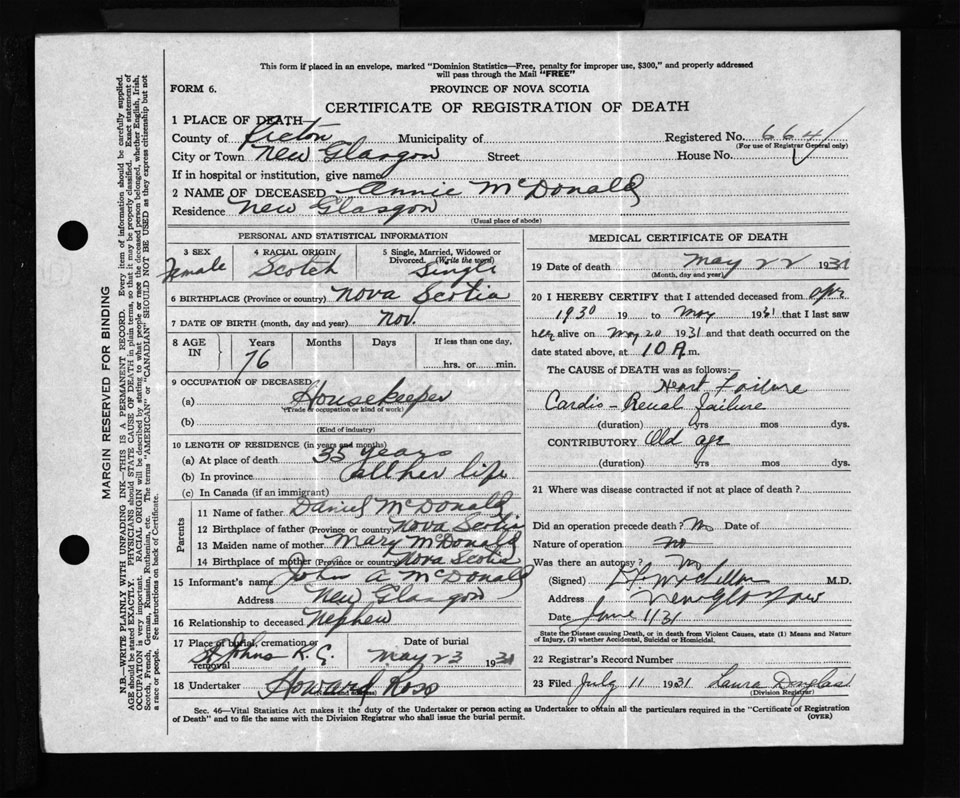 This form if placed in an envelope, marked "Dominion Statistics—Free, penalty for improper use, $300," and properly addressed
will pass through the Mail "FREE"
FORM 6.
PROVINCE OF NOVA SCOTIA
CERTIFICATE OF REGISTRATION OF DEATH
1 PLACE OF DEATH—
County of Pictou Municipality of Registered No. 6641
(For use of Registrar General only)
City or Town New Glasgow Street House No.
If in hospital or institution, give name
2 NAME OF DECEASED Annie McDonald
Residence New Glasgow
(Usual place of abode)
PERSONAL AND STATISTICAL INFORMATION
3 SEX Female
4 RACIAL ORIGIN Scotch
5 Single, Married, Widowed or
Divorced. (Write the word) Single
6 BIRTHPLACE (Province or country) Nova Scotia
7 DATE OF BIRTH (month, day and year) Nov.
8 AGE IN Years Months Days If less than one day,
76 hrs. or min.
9 OCCUPATION OF DECEASED
(a) Housekeeper
(Trade or occupation or kind of work)
(b)
(Kind of industry)
10 LENGTH OF RESIDENCE (in years and months)
(a) At place of death 35 years
(b) In province all her life
(c) In Canada (if an immigrant)
Parents
11 Name of father Daniel McDonald
12 Birthplace of father (Province or country) Nova Scotia
13 Maiden name of mother Mary McDonald
14 Birthplace of mother (Province or country) Nova Scotia
15 Informant's name John A McDonald
Address New Glasgow
16 Relationship to deceased Nephew
17 Place of burial, cremation or
removal St Johns R.C.
Date of burial
May 23 1931
18 Undertaker Howard Ross
MEDICAL CERTIFICATE OF DEATH
19 Date of death May 22 1931
(Month, day and year)
20 I HEREBY CERTIFY that I attended deceased from Apr
1930 19 to May 1931 that I last saw
her alive on May 20 1931 and that death occurred on
date stated above, at 10 A.m.
The CAUSE of DEATH was as follows:—
Heart Failure
Cardio-Renal failure
(duration) yrs mos dys.
CONTRIBUTORY Old age
(duration) yrs mos dys.
21 Where was disease contracted if not at place of death?
Did an operation precede death? No Date of
Nature of operation no
Was there an autopsy? No
(Signed) M.D.
Address New Glasgow
Date June 1/31
State the Disease causing Death, or in death from Violent Causes, state (1) Means and Nature
of Injury, (2) whether Accidental, Suicidal or Homicidal.
22 Registrar's Record Number
23 Filed July 11 1931 Laura Douglas
(Division Registrar)
Sec. 46—Vital Statistics Act makes it the duty of the Undertaker or person acting as Undertaker to obtain all the particulars required in the "Certificate of Registration
of Death" and to file the same with the Division Registrar who shall issue the burial permit.
(OVER)
MARGIN RESERVED FOR BINDING
N.B.—WRITE PLAINLY WITH UNFADING INK—THIS IS A PERMANENT RECORD. Every item of information should be carefully supplied.
AGE should be stated EXACTLY. PHYSICIANS should STATE CAUSE OF DEATH in plain terms, so that it may be properly classified. Exact statement of
OCCUPATION is very important. RACIAL ORIGIN will be described by stating to what people or race the deceased person belonged, whether English, Irish,
Scotch, French, German, Russian, Ruthenian, etc. The terms "AMERICAN" or "CANADIAN" SHOULD NOT BE USED as they express citizenship but not
a race or people. See instructions on back of Certificate.